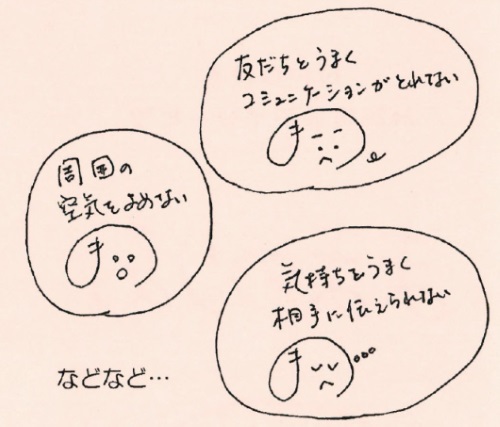 友だちとうまく
コミュニケーションがとれてない
周囲の
空気をよめない
気持ちをうまく
相手に伝えられない
などなど…